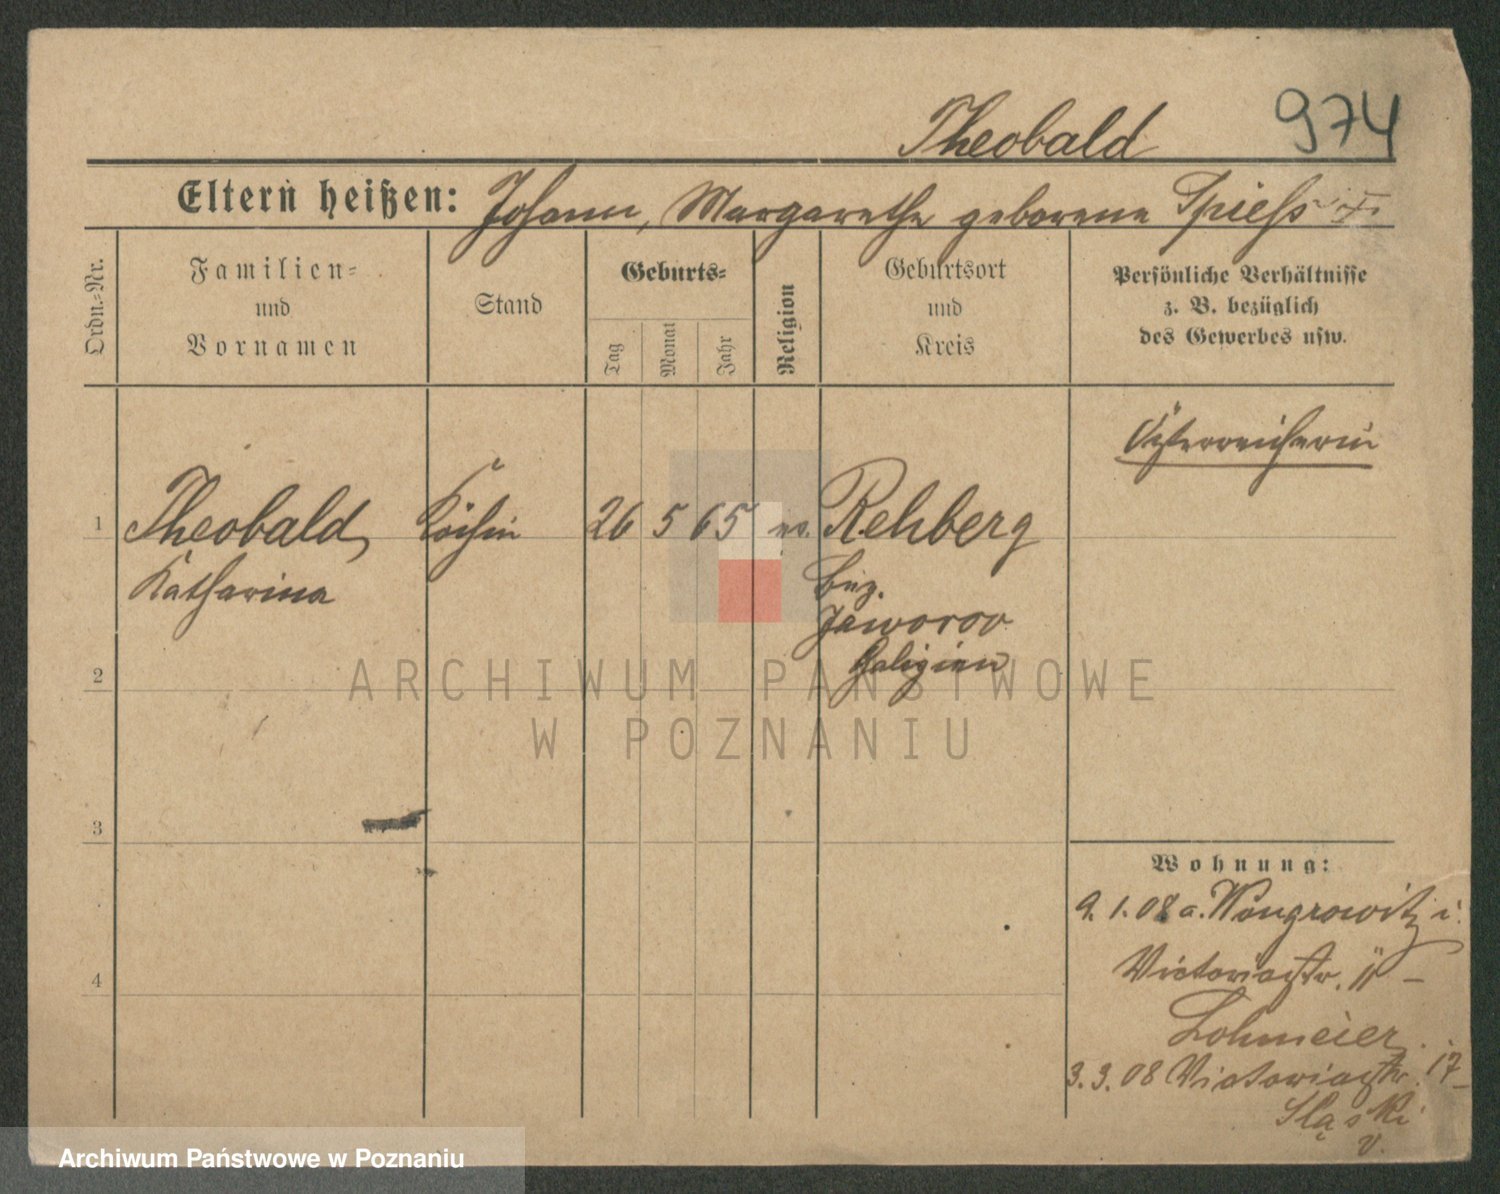 Theobald 974
Eltern heißen: Johann, Margarethe geborene Spiess
Ordn.-Nr.
Familien-
und
Vornamen
Stand
Geburts-
Tag
Monat
Jahr
Religion
Geburtsort
und
Kreis
Persönliche Verhältnisse
z. B. bezüglich
des Gewerbes usw.
Österreicherin
1 Theobald, Köchin 26 5 65 ev. Rehberg
Katharina Bez.
Jaworov
Galizien
2
3
4
Wohnung:
9. 1. 08 a. Wongrowitz i.
Victoriastr. 11 -
Lohmeier.
3. 3. 08 Victoriastr. 17 -
Sląski
v.
ARCHIWUM PAŃSTWOWE
W POZNANIU
Archiwum Państwowe w Poznaniu